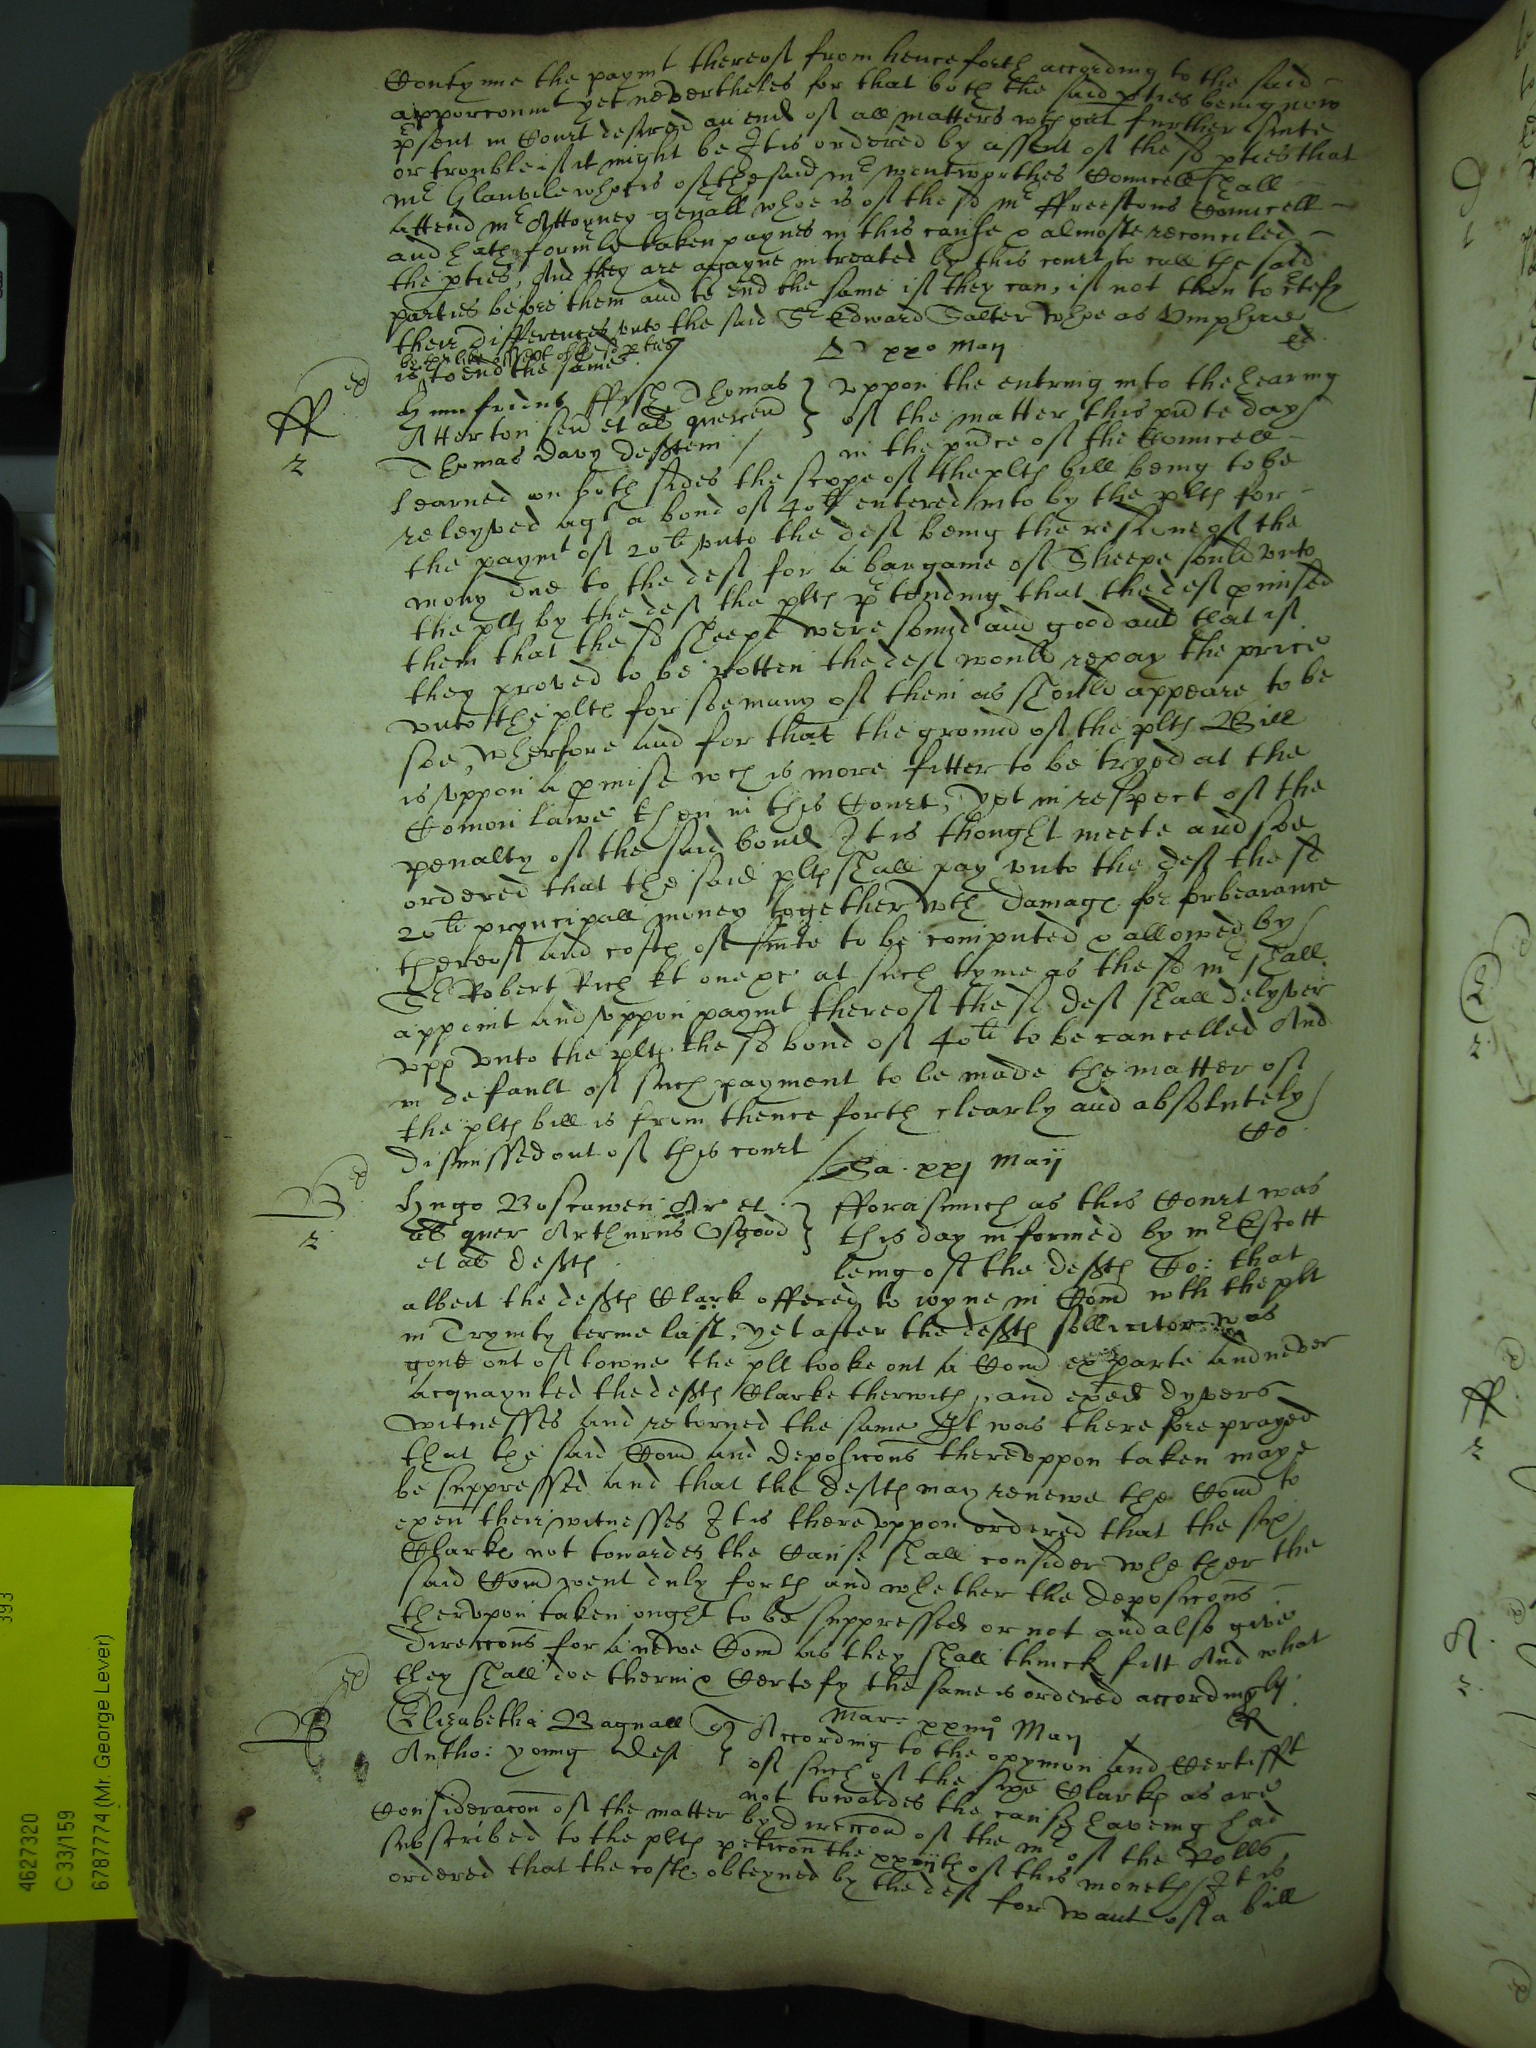 Contynue the paymt thereof from henceforth according to the said
apporconmt yet nevertheles for that both the said pties being now
psent in Court desired an end of all matters wthout further suite
or trouble if it might be It is ordered by assent of the sd pties that
mr Glanvile whoe is of the said mr wentworthes Councell shall
attend mr Attorney genall whoe is of the sd mr ffreestons Councell
and hath formrly taken paynes in this cause & almoste reconciled
the pties, And they are agayne intreated by this court to call the said
parties before them and to end the same if they can, if not then to ctefy
their differences unto the said Sr Edward Salter whoe as Umphire
by the like assent of the sd pties
is to end the same
xxo Maij
Humfridus ffish Thomas
Atterton sen et al querend
Thomas Davy defftem
Uppon the entring into the hearing
of the matter this pnte day
in the pnce of the Councell
Learned on both sides the scope of the pltes bill being to be
releyved agt a bond of 40li entered into by the pltes for
the paymt of 20li unto the deft being the residue of the
mony due to the deft for a bargaine of Sheepe sould unto
the pltes by the deft the pltes ptending that the deft pmised
them that the sd sheepe were sound and good and that if
they proved to be Rotten the deft would repay the price
unto the pltes for soe many of them as should appeare to be
soe, wherfore and for that the ground of the pltes Bill
is uppon a pmise wch is more fitter to be tryed at the
Comon lawe then in this Court, yet in respect of the
penalty of the said bond It is thought meete and soe
ordered that the said pltes shall pay unto the deft the sd
20li pryncipall money together wth damages for forbearance
thereof and costes of suite to be computed & allowed by
Sr Robert Rich kt one &c at such tyme as the sd mr shall
appoint and uppon paymt thereof the sd deft shall delyver
upp unto the pltes the sd bond of 40li to be cancelled And
in default of such payment to be made the matter of
the pltes bill is from thence forth clearly and absolutely
dismissed out of this court
Co
Sa. xxj Maij
Hugo Boscawen Ar et
al quer Arthurus Osgood
et al defftes
fforasmuch as this Court was
this day informed by mr Escott
being of the defftes Co: that
albeit the defftes Clark offered to ioyne in Com wth the plt
in Trynity terme last, yet after the defftes sollicitor was
gone out of towne the plt tooke out a Com ex parte and never
acquaynted the defftes Clarke therwith, and exed dyvers
witnesses and retorned the same It was therefore prayed
that the said Com and deposicons thereuppon taken maye
be suppressed and that the defftes may renewe the Com to
exen their witnesses It is thereuppon ordered that the six
Clarkes not towardes the Cause shall consider whether the
said Com went duly forth and whether the deposicons
therupon taken ought to be suppressed or not and also give
direccons for a newe Com as they shall thinck fitt And what
they shall doe therin & Certefy the same is ordered accordingly
Mar. xxiiijo Maij
Elizabetha Bagnall
Antho: Yonng deft
According to the opynion and Certifft
of such of the sixe Clarkes as are
not towardes the cause haveing had
Consideracon of the matter by direccon of the mr of the Rolls
subscribed to the pltes peticon the xxiijth of this moneth It is
ordered that the costes obteyned by the deft for want of a bill
4627320
C 33/159
6787774 (Mr. George Lever)
393